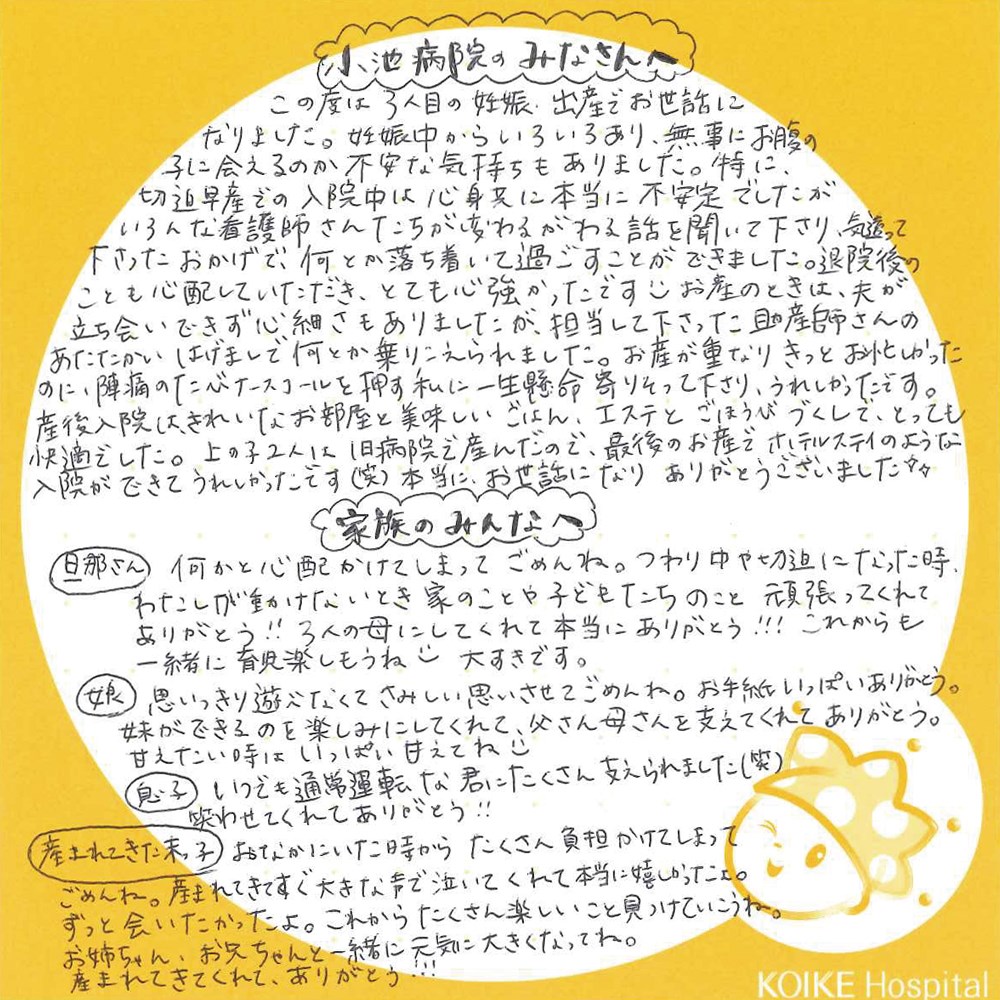 小池病院のみなさんへ
この度は3人目の妊娠・出産でお世話に
なりました。妊娠中からいろいろあり、無事にお腹の
子に会えるのか不安な気持ちもありました。特に、
切迫早産での入院中は心身共に本当に不安定でしたが
いろんな看護師さんたちが変わるがわる話を聞いて下さり、気遣って
下さったおかげで、何とか落ち着いて過ごすことができました。退院後の
ことも心配していただき、とても心強かったです お産のときは、夫が
立ち会いできず心細さもありましたが、担当して下さった助産師さんの
あたたかいはげましで何とか乗りこえられました。お産が重なりきっとお忙しかった
のに、陣痛のたびナースコールを押す私に一生懸命寄りそって下さり、うれしかったです。
産後入院はきれいなお部屋と美味しいごはん、エステとごほうびづくしで、とっても
快適でした。上の子2人は旧病院で産んだので、最後のお産でホテルステイのような
入院ができてうれしかったです(笑)本当に、お世話になりありがとうございました
家族のみんなへ
旦那さん 何かと心配かけてしまってごめんね。つわり中や切迫になった時、
わたしが動けないとき家のことや子どもたちのこと頑張ってくれて
ありがとう!!3人の母にしてくれて本当にありがとう!!!これからも
一緒に育児楽しもうね 大すきです。
娘 思いっきり遊べなくてさみしい思いさせてごめんね。お手紙いっぱいありがとう。
妹ができるのを楽しみにしてくれて、父さん母さんを支えてくれてありがとう。
甘えたい時はいっぱい甘えてね
息子 いつでも通常運転な君にたくさん支えられました(笑)
笑わせてくれてありがとう!!
産まれてきた末っ子 おなかにいた時からたくさん負担かけてしまって
ごめんね。産まれてきてすぐ大きな声で泣いてくれて本当に嬉しかったよ。
ずっと会いたかったよ。これからたくさん楽しいこと見つけていこうね。
お姉ちゃん、お兄ちゃんと一緒に元気に大きくなってね。
産まれてきてくれて、ありがとう!!!
KOIKE Hospital